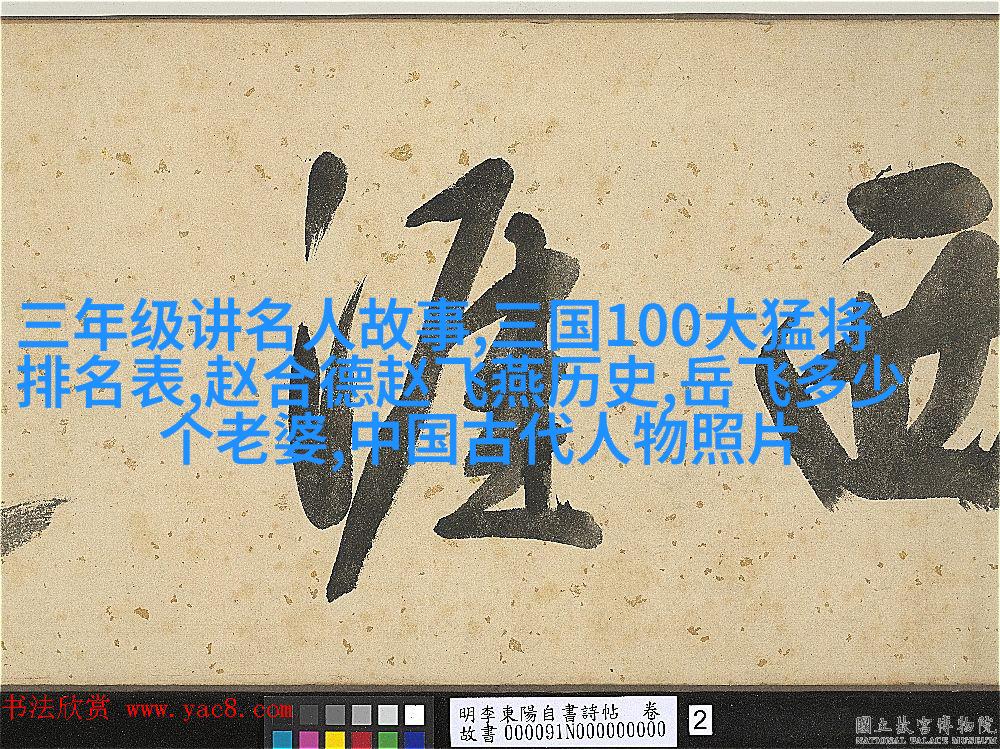 西涯
三年级讲名人故事,三国100大猛将
排名表,赵合德赵飞燕历史,岳飞多少
个老婆,中国古代人物照片
书法欣赏 www.yac8.com
明李東陽自書詩帖 卷
故書 000091N000000000
2
國立故宮博物院
NATIONAL PALACE MUSEUM